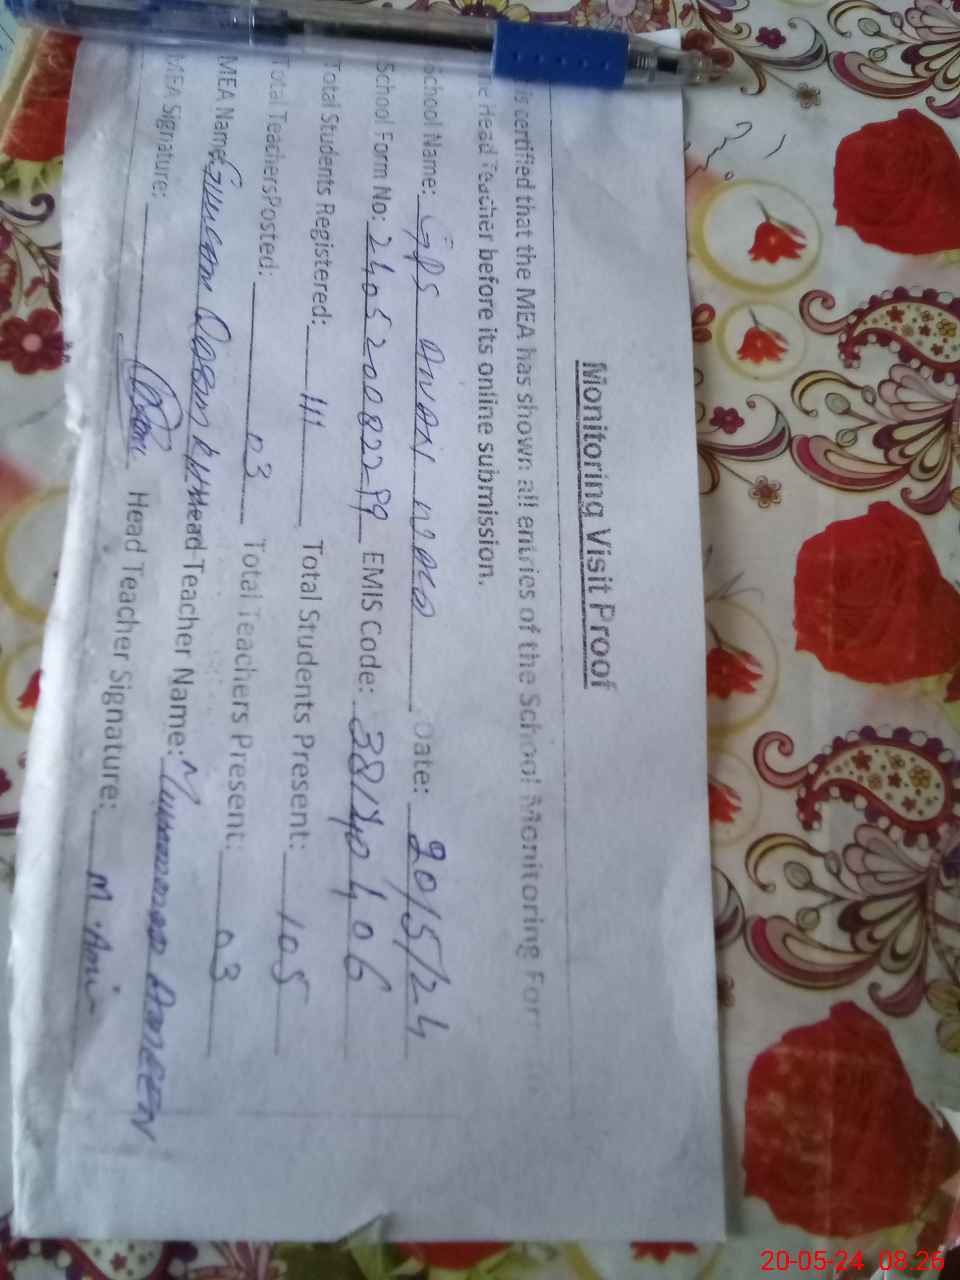 Monitoring Visit Proof
is certified that the MEA has shown all entries of the School Monitoring Form
Head Teacher before its online submission.
School Name: GPS Date: 20/5/24
School Form No: 2405200822299 EMIS Code: 38140406
Total Students Registered: 111 Total Students Present: 105
Total TeachersPosted: 03 Total Teachers Present: 03
MEA Name: Head Teacher Name: Muhammad AMEEN
MEA Signature: Head Teacher Signature: M.
20-05-24 08:26